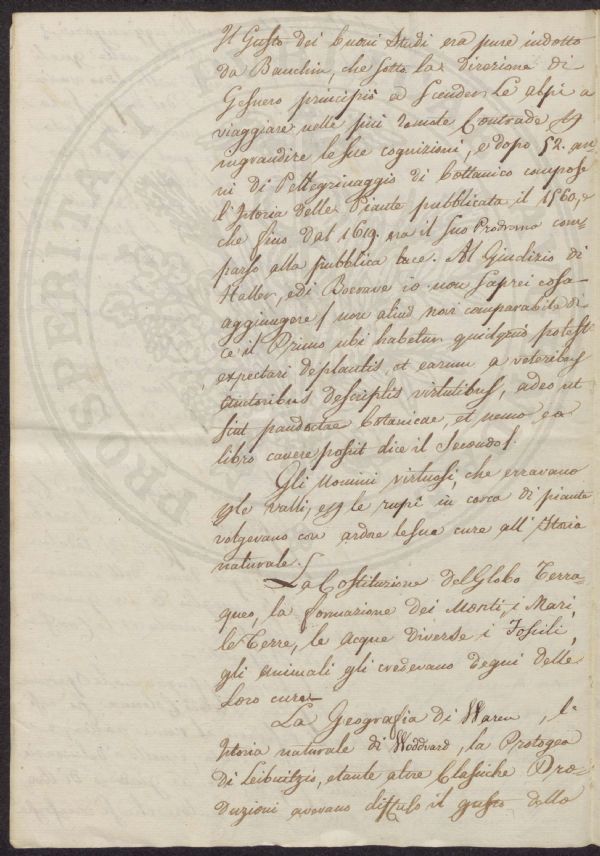 Il Gusto dei buoni Studi era pure indotto
da Bauchin, che sotto la direzione di
Gesnero principiò a scender le alpi a
viaggiare nelle più remote Contrade
ingrandire le sue cognizioni, e dopo 52. an-
ni di Pellegrinaggio di bottanico compose
l'Istoria delle Piante pubblicata il 1560, e
che fino dal 1619. era il suo Prodromo com-
parso alla pubblica luce. Al Giudizio di
Haller, e di Boerave io non saprei cosa
aggiungere / non aliud novi comparabile di-
ce il Primo ubi habetur quidquid potest
expectari de plantis, et earum a veteribus
auctoribus descriptis virtutibus, adeo ut
sint pandectae botanicae, et nemo eo
libro carere possit dice il Secondo /.
Gli Uomini virtuosi, che erravano
le valli, e le rupi in cerca di piante
volgevano con ardore le sue cure all'Istoria
naturale.
La Costituzione del Globo Terra-
queo, la formazione dei Monti, i Mari,
le Terre, le acque diverse i Fossili,
gli animali gli credevano degni delle
loro cure
La Geografia di Waren, l'
Istoria naturale di Woddvard, la Protogea
di Leibnitzio, e tante altre Classiche Pro-
duzioni avevano diffuso il gusto dello
PROSPERITATI